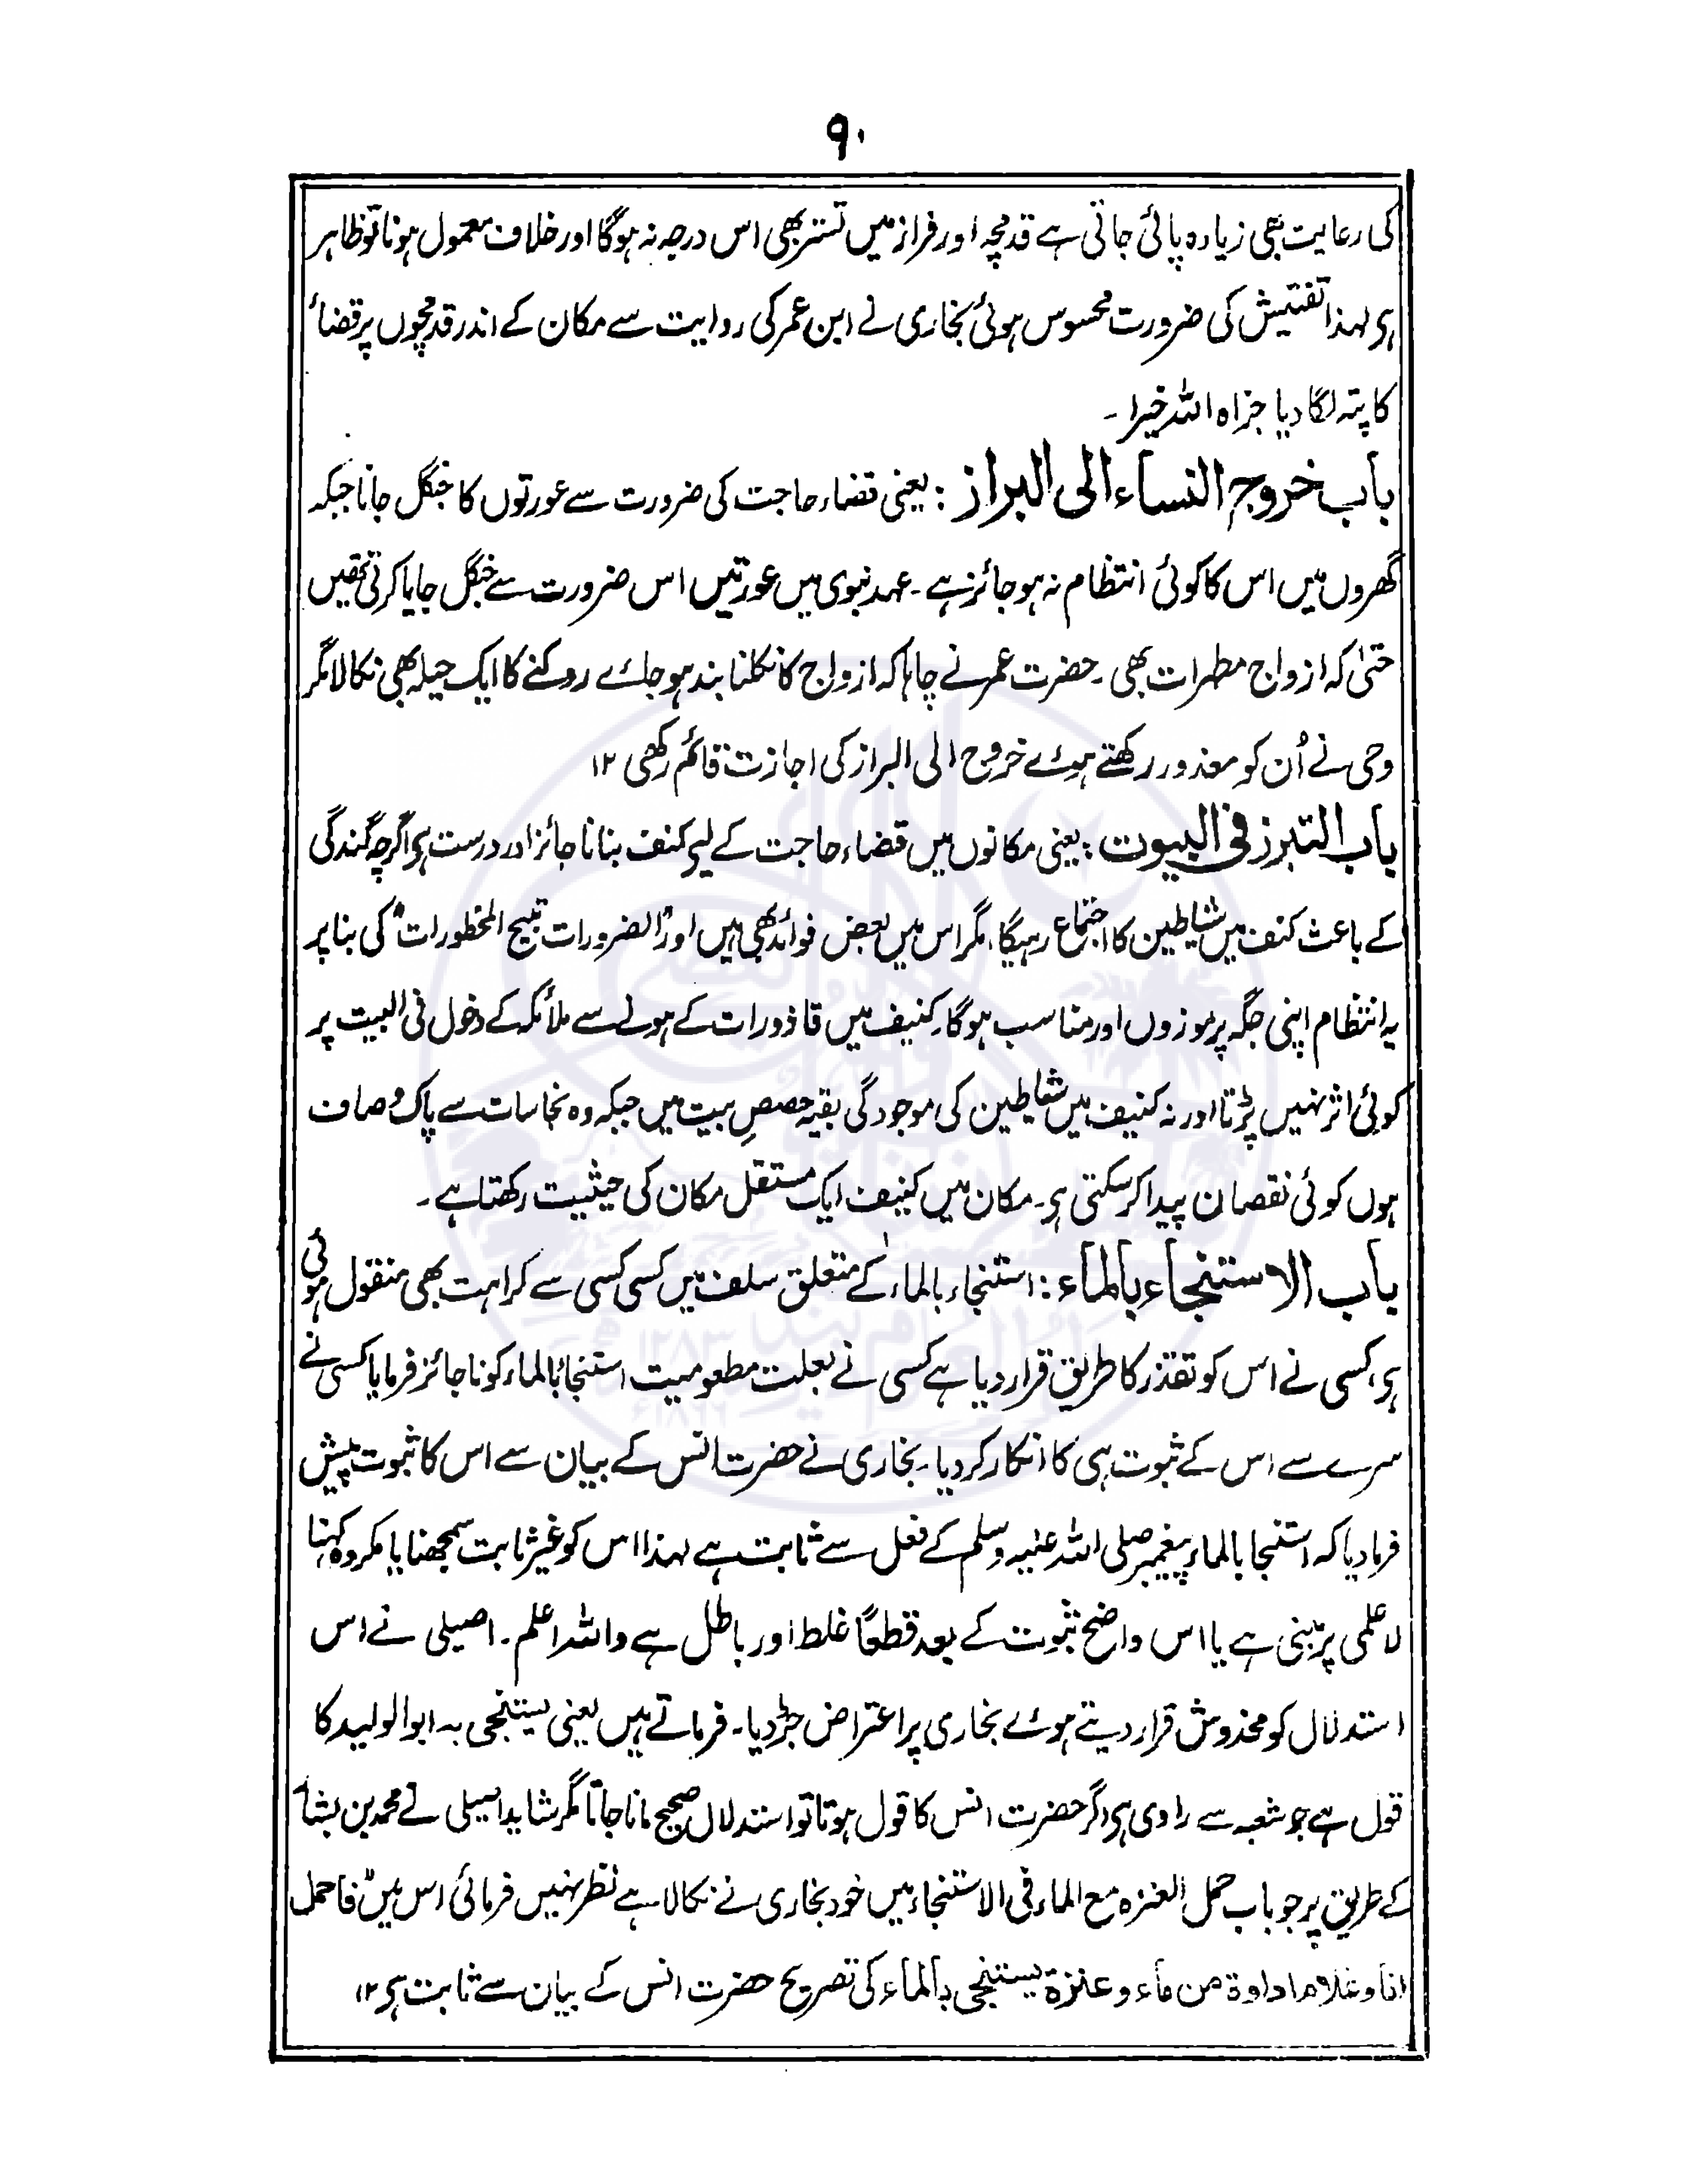 ۹۰
کی رعایت بھی زیادہ پائی جاتی ہے قدمچہ اور فراز میں تستر بھی اس درجہ نہ ہوگا اور خلاف معمول ہونا تو ظاہر
ہی لہذا تفتیش کی ضرورت محسوس ہوئی بخاری نے ابن عمر کی روایت سے مکان کے اندر قدمچوں پر قضاء
کا پتہ لگا دیا جزاہ اللہ خیرا ۔
باب خروج النساء الی البراز : یعنی قضاء حاجت کی ضرورت سے عورتوں کا جنگل جانا جبکہ
گھروں میں اس کا کوئی انتظام نہ ہو جائز ہے ۔ عہد نبوی میں عورتیں اس ضرورت سے جنگل جایا کرتی تھیں
حتیٰ کہ ازواج مطہرات بھی ۔ حضرت عمر نے چاہا کہ ازواج کا نکلنا بند ہو جائے روکنے کا ایک حیلہ بھی نکالا مگر
وحی نے اُن کو معذور رکھتے ہوئے خروج الی البراز کی اجازت قائم رکھی ۱۲
باب التبرز فی البیوت : یعنی مکانوں میں قضاء حاجت کے لیے کنف بنانا جائز اور درست ہی اگرچہ گندگی
کے باعث کنف میں شیاطین کا اجتماع رہیگا، مگر اس میں بعض فوائد بھی ہیں اور "الضرورات تبیح المحظورات" کی بنا پر
یہ انتظام اپنی جگہ پر موزوں اور مناسب ہوگا۔ کنیف میں قاذورات کے ہونے سے ملائکہ کے دخول فی البیت پر
کوئی اثر نہیں پڑتا اور نہ کنیف میں شیاطین کی موجودگی بقیہ حصصِ بیت میں جبکہ وہ نجاسات سے پاک و صاف
ہوں کوئی نقصان پیدا کر سکتی ہی ۔ مکان میں کنیف ایک مستقل مکان کی حیثیت رکھتا ہے ۔
باب الاستنجاء بالماء : استنجاء بالماء کے متعلق سلف میں کسی کسی سے کراہت بھی منقول ہوئی
ہی، کسی نے اس کو تقذر کا طریق قرار دیا ہے کسی نے بعلت مطعومیت استنجاء بالماء کو ناجائز فرمایا کسی نے
سرے سے اس کے ثبوت ہی کا انکار کر دیا ۔ بخاری نے حضرت انس کے بیان سے اس کا ثبوت پیش
فرما دیا کہ استنجا بالماء پیغمبر صلی اللہ علیہ وسلم کے فعل سے ثابت ہے لہذا اس کو غیر ثابت سمجھنا یا مکروہ کہنا
لا علمی پر مبنی ہے یا اس واضح ثبوت کے بعد قطعًا غلط اور باطل ہے واللہ اعلم ۔ اصیلی نے اس
استدلال کو مخدوش قرار دیتے ہوئے بخاری پر اعتراض جڑ دیا ۔ فرماتے ہیں یعنی یستنجی بہ ابو الولید کا
قول ہے جو شعبہ سے راوی ہی اگر حضرت انس کا قول ہوتا تو استدلال صحیح مانا جاتا مگر شاید اصیلی نے محمد بن بشار
کے طریق پر جو باب حمل العنزہ مع الماء فی الاستنجاء میں خود بخاری نے نکالا ہے نظر نہیں فرمائی اس میں فاحمل
انا وغلام اداوة من ماء وعنزة یستنجی بالماء کی تصریح حضرت انس کے بیان سے ثابت ہی ۱۲